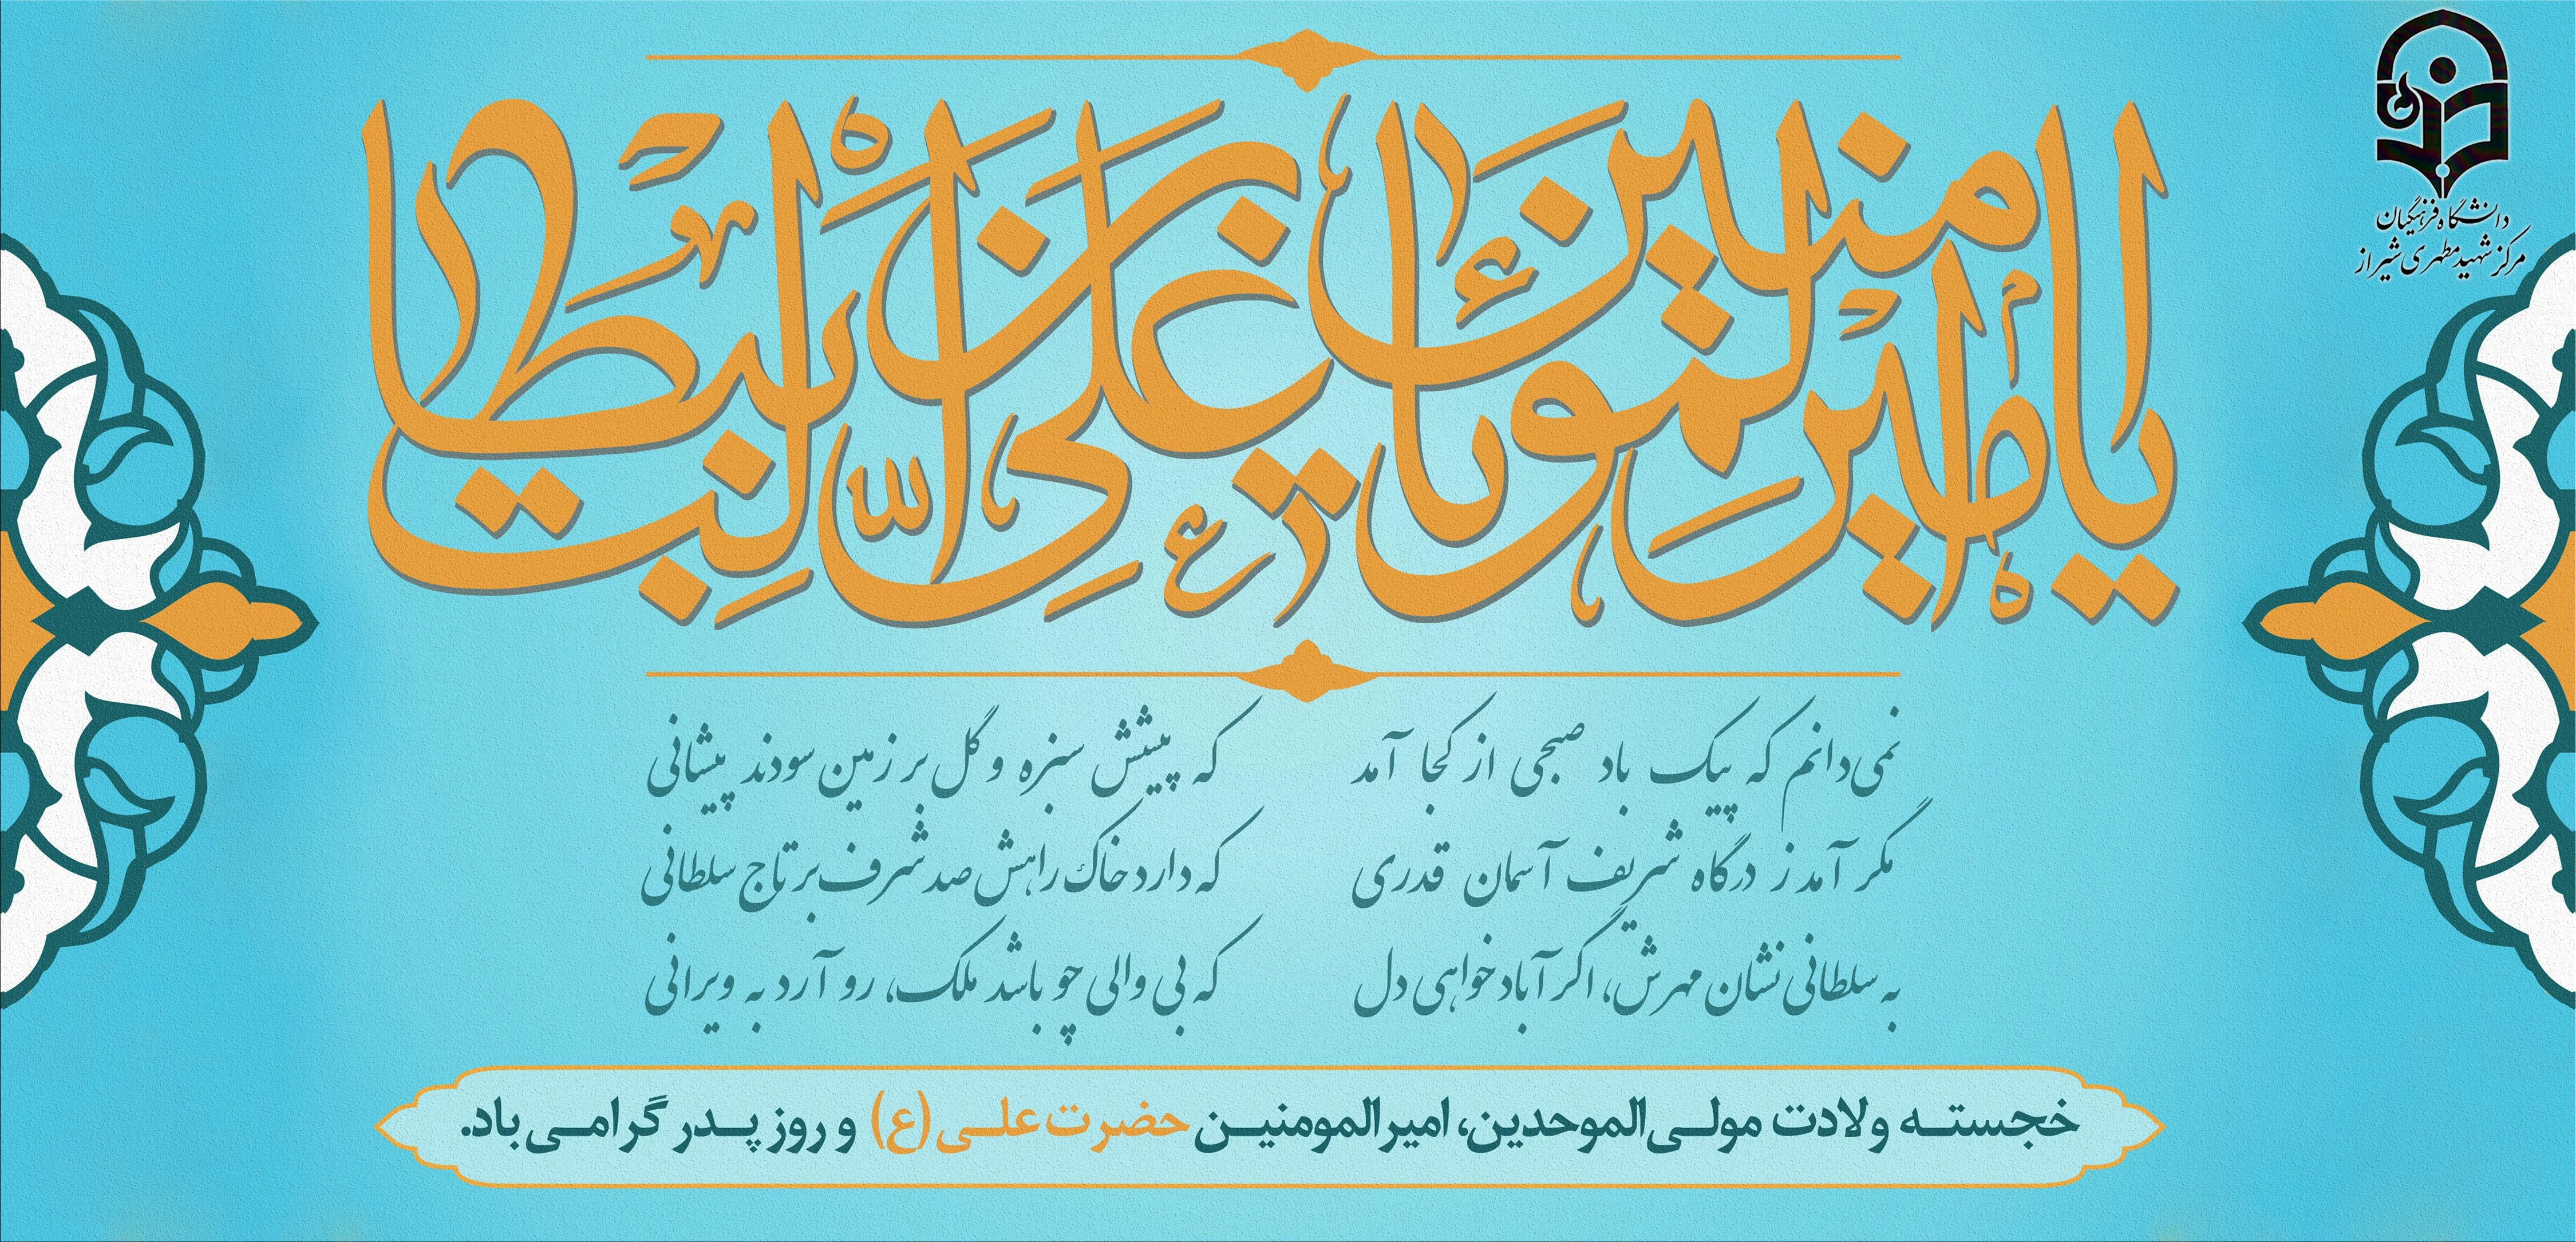 دانشگاه فرهنگیان
مرکز شهید مطهری شیراز
یا امیرالمومنین یا علی ابن ابیطالب
نمی‌دانم که پیک باد صبحی از کجا آمد که پیشش سبزه و گل بر زمین سودند پیشانی
مگر آمد ز درگاه شریف آسمان قدری که دارد خاک راهش صد شرف بر تاج سلطانی
به سلطانی نشان مهرش، اگر آباد خواهی دل که بی والی چو باشد ملک، رو آرد به ویرانی
خجسته ولادت مولی‌الموحدین، امیرالمومنین حضرت علی (ع) و روز پدر گرامی باد.